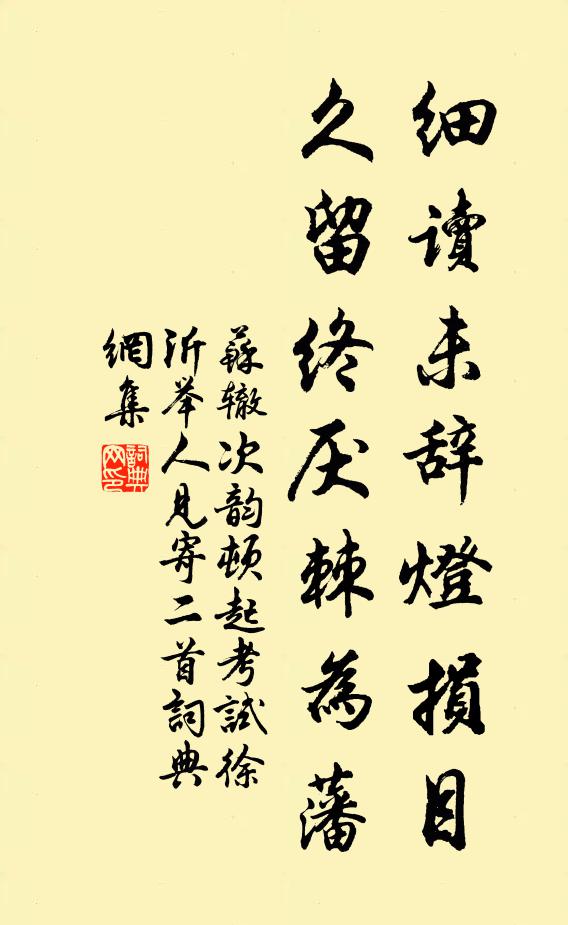 细读未辞燈損目
久留终厌棘為藩
蘇辙次韵頓起考試徐
沂举人見寄二首詞典
網集
詞典
网印